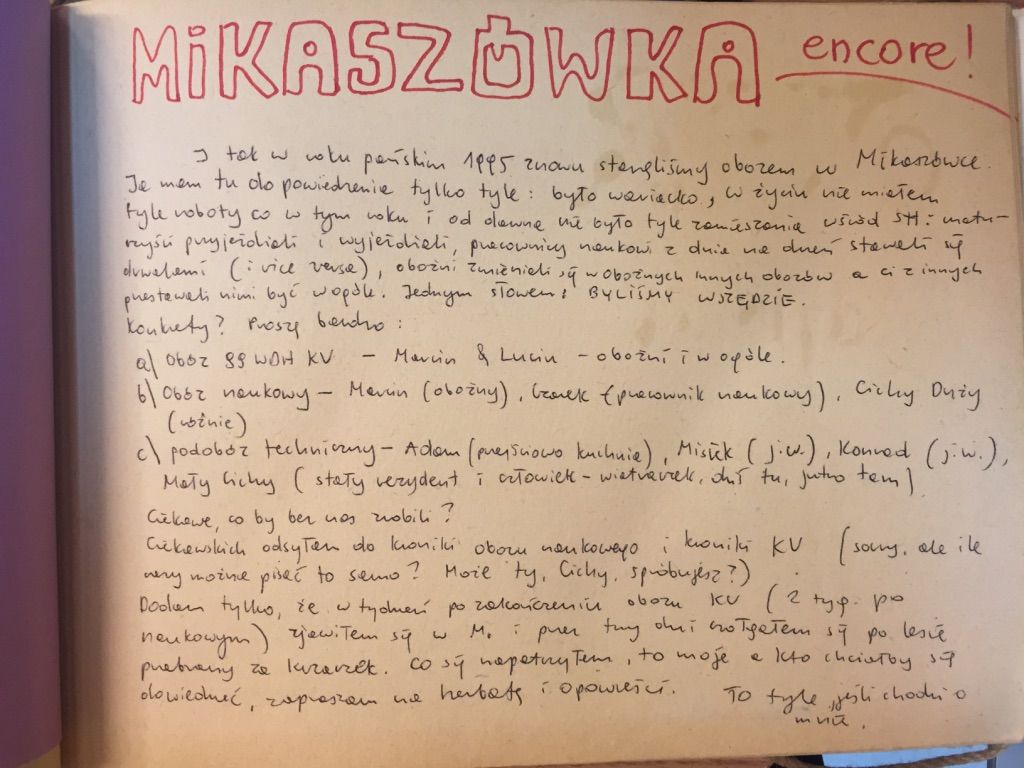 MiKASZÓWKA encore!
I tak w roku pańskim 1995 znowu stanęliśmy obozem w Mikaszówce.
Ja mam tu do powiedzenia tylko tyle: było wariacko, w życiu nie miałem
tyle roboty co w tym roku i od dawna nie było tyle zamieszania wśród SH: matu-
rzyści przyjeżdżali i wyjeżdżali, pracownicy naukowi z dnia na dzień stawali się
drwalami (i vice versa), oboźni zmieniali się w oboźnych innych obozów a ci z innych
przestawali nimi być w ogóle. Jednym słowem: BYLIŚMY WSZĘDZIE.
Konkrety? Proszę bardzo:
a\ Obóz 99 WDH KV – Marcin & Lucin – oboźni i w ogóle.
b\ Obóz naukowy – Marcin (oboźny), Czarek (pracownik naukowy), Cichy Duży
(różnie)
c\ podobóz techniczny – Adam (przejściowo kuchnia), Misiek (j.w.), Konrad (j.w.),
Mały Cichy (stały rezydent i człowiek-wiatraczek, dziś tu, jutro tam)
Ciekawe, co by bez nas zrobili?
Ciekawskich odsyłam do kroniki obozu naukowego i kroniki KV (sorry, ale ile
razy można pisać to samo? Może ty, Cichy, spróbujesz?)
Dodam tylko, że w tydzień po zakończeniu obozu KV (2 tyg. po
naukowym) zjawiłem się w M. i przez trzy dni czołgałem się po lesie
przebrany za krzaczek. Co się napatrzyłem, to moje a kto chciałby się
dowiedzieć, zapraszam na herbatę i opowieści. To tyle, jeśli chodzi o
mnie.